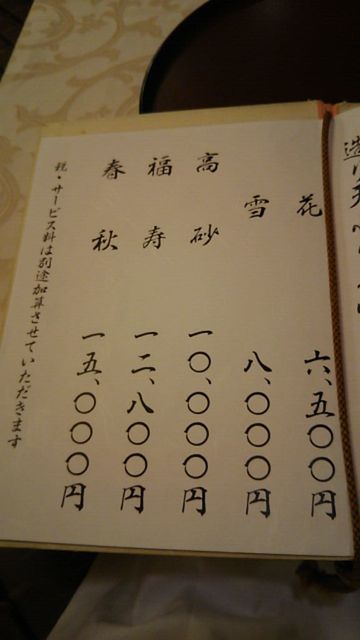 花 六、五〇〇円
雪 八、〇〇〇円
高砂 一〇、〇〇〇円
福寿 一二、八〇〇円
春秋 一五、〇〇〇円
税・サービス料は別途加算させていただきます